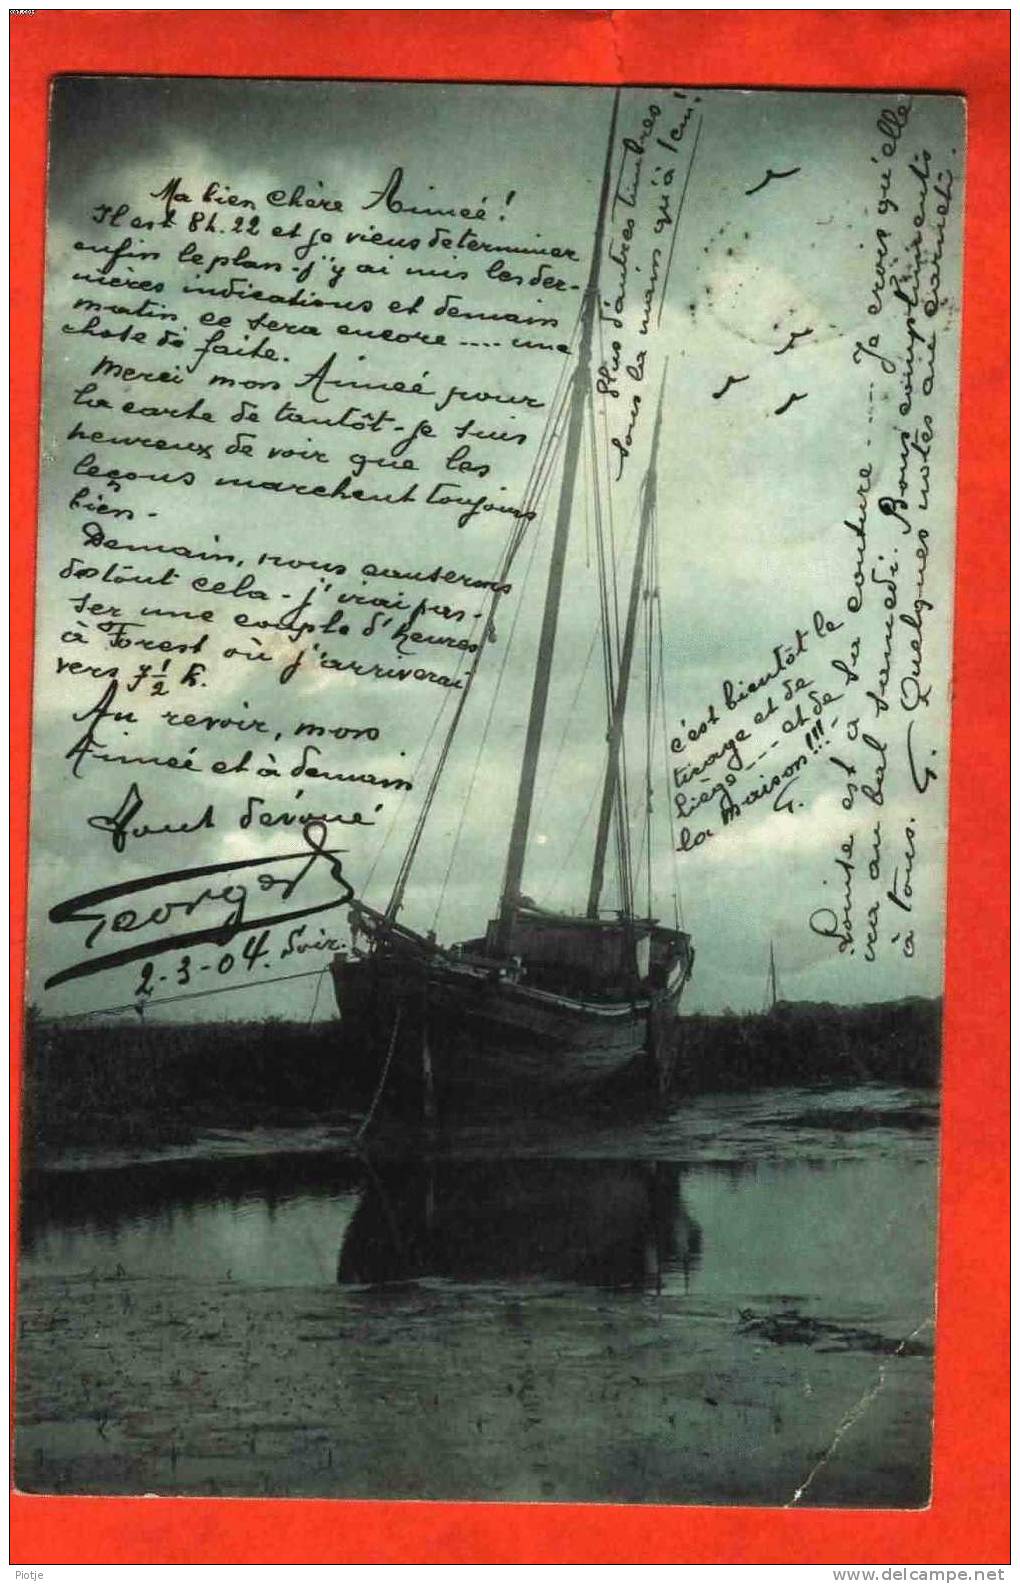 Ma bien chère Aimée!
Il est 8h.22 et je viens de terminer
enfin le plan - j'y ai mis les der-
nières indications et demain
matin ce sera encore .... une
chose de faite.
Merci mon Aimée pour
ta carte de tantôt - je suis
heureux de voir que les
leçons marchent toujours
bien -
Demain, nous causerons
de tout cela - j'irai pas-
ser une couple d'heures
à Forest où j'arriverai
vers 7 1/2 h.
Au revoir, mon
Aimée et à demain
Tout dévoué
Georges
2-3-04. Soir.
Plus d'autres timbres
sous la main qu'à 1cm!
c'est bientôt le
tirage et de
liège --- et de
la maison!!! -
G.
Louise est à sa couture ---- Je crois qu'elle
ira au bal samedi. Bons compliments
à tous. G. Quelques notes au carnet.
www.delcampe.net
Piotje